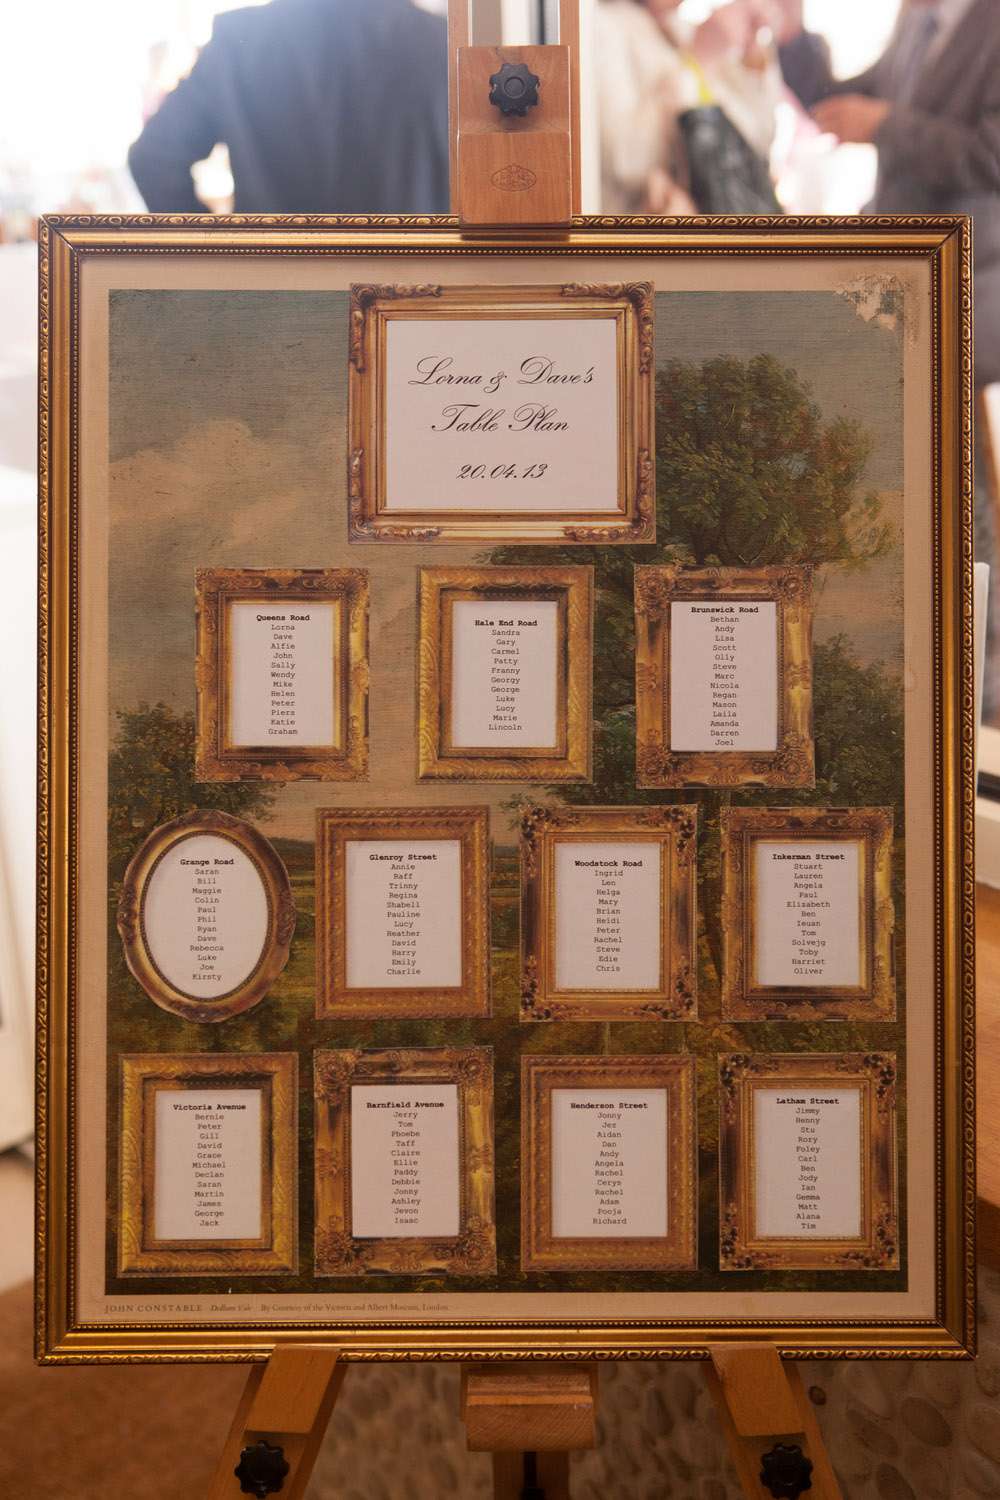 Lorna & Dave's
Table Plan
20.04.13
Queens Road
Lorna
Dave
Alfie
John
Sally
Wendy
Mike
Helen
Peter
Piers
Katie
Graham
Hale End Road
Sandra
Gary
Carmel
Patty
Franny
Georgy
George
Luke
Lucy
Marie
Lincoln
Brunswick Road
Bethan
Andy
Lisa
Scott
Olly
Steve
Marc
Nicola
Regan
Mason
Laila
Amanda
Darren
Joel
Grange Road
Saran
Bill
Maggie
Colin
Paul
Phil
Ryan
Dave
Rebecca
Luke
Joe
Kirsty
Glenroy Street
Annie
Raff
Trinny
Regina
Shabell
Pauline
Lucy
Heather
David
Harry
Emily
Charlie
Woodstock Road
Ingrid
Len
Helga
Mary
Brian
Heidi
Peter
Rachel
Steve
Edie
Chris
Inkerman Street
Stuart
Lauren
Angela
Paul
Elizabeth
Ben
Ieuan
Tom
Solvejg
Toby
Harriet
Oliver
Victoria Avenue
Bernie
Peter
Gill
David
Grace
Michael
Declan
Saran
Martin
James
George
Jack
Barnfield Avenue
Jerry
Tom
Phoebe
Taff
Claire
Ellie
Paddy
Debbie
Jonny
Ashley
Jevon
Isaac
Henderson Street
Jonny
Jez
Aidan
Dan
Andy
Angela
Rachel
Cerys
Rachel
Adam
Pooja
Richard
Latham Street
Jimmy
Henny
Stu
Rory
Foley
Carl
Ben
Jody
Ian
Gemma
Matt
Alana
Tim
JOHN CONSTABLE Dedham Vale By Courtesy of the Victoria and Albert Museum, London